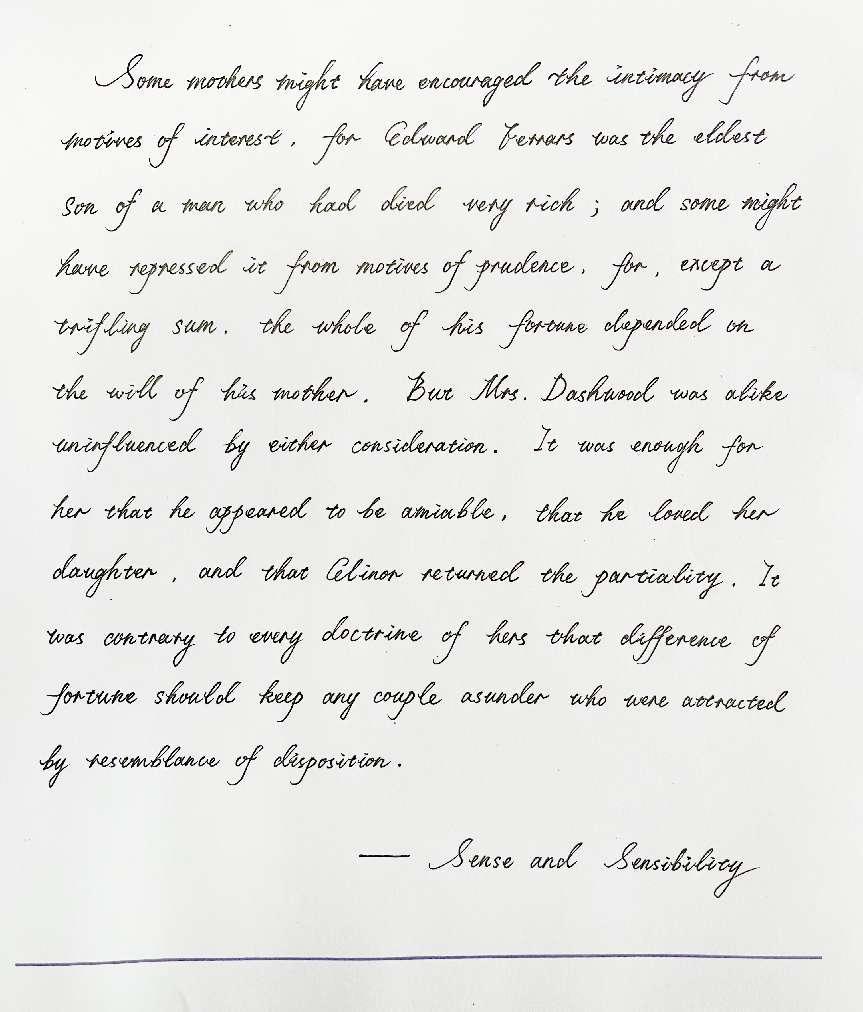 Some mothers might have encouraged the intimacy from
motives of interest, for Edward Ferrars was the eldest
son of a man who had died very rich; and some might
have repressed it from motives of prudence, for, except a
trifling sum, the whole of his fortune depended on
the will of his mother. But Mrs. Dashwood was alike
uninfluenced by either consideration. It was enough for
her that he appeared to be amiable, that he loved her
daughter, and that Elinor returned the partiality. It
was contrary to every doctrine of hers that difference of
fortune should keep any couple asunder who were attracted
by resemblance of disposition.
— Sense and Sensibility